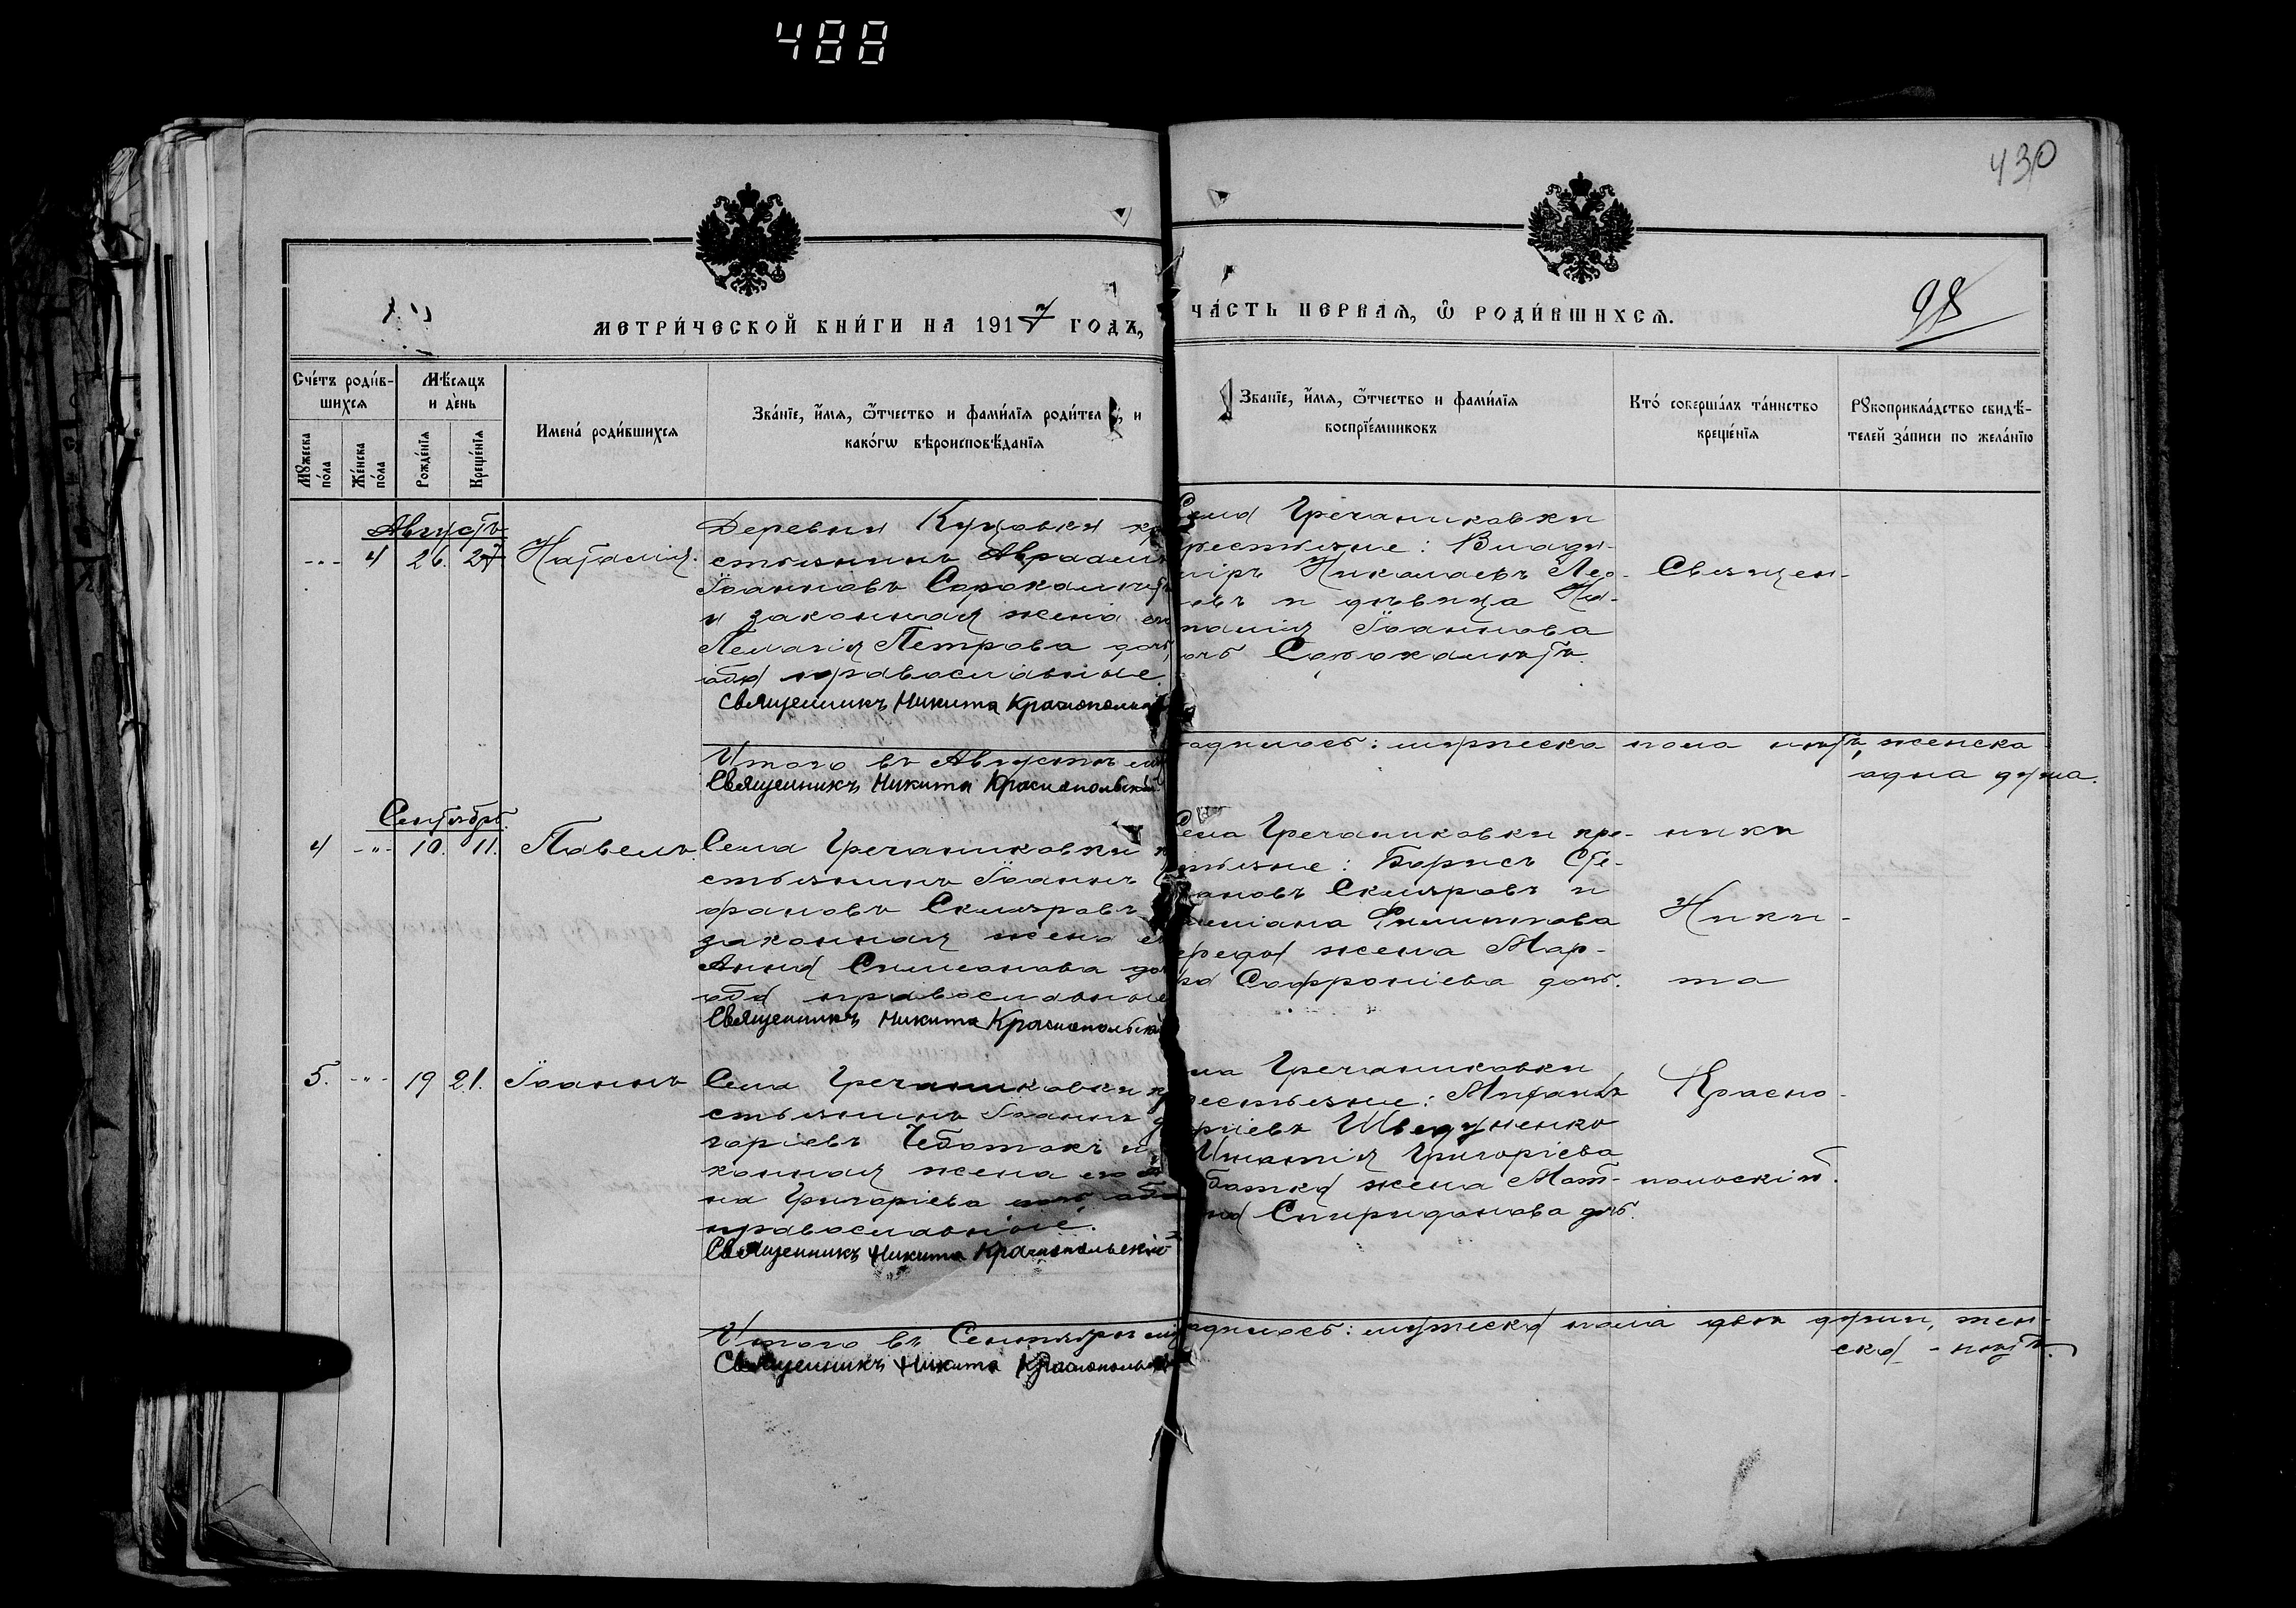 488
430
98
МЕТРИ́ЧЕСКОЙ КНИ́ГИ НА 1917 ГОДЪ,
ЧА́СТЬ ПЕРВАѦ, Ѡ҆ РОДИ́ВШИХСѦ.
Сче́тъ роди́в-
шихсѧ
Мѣ́сѧцъ
и де́нь
Мꙋ́жеска
по́ла
Же́нска
по́ла
Рожде́нїѧ
Креще́нїѧ
Имена̀ роди́вшихсѧ
Зва́нїе, и҆́мѧ, ѻ҆́тчество и фами́лїѧ роди́тел , и
како́гѡ вѣроисповѣ́данїѧ
Зва́нїе, и҆́мѧ, ѻ҆́тчество и фами́лїѧ
воспрїе́мниковъ
Кто́ соверша́лъ та́инство
креще́нїѧ
Рꙋкоприкла́дство свидѣ́-
телей за́писи по жела́нїю
Августъ
4 26. 27 Наталія.
Деревни Куцовки кре
стьянинъ Авраамъ
Іоанновъ Сорокалитъ
и законная жена его
Пелагія Петрова доч.
оба православные.
Священникъ Никита Краснопольскій
Села Гречаниковки
крестьяне: Влади-
міръ Николаевъ Лео-
новъ и дѣвица На-
талія Іоаннова
Священ-
Итого въ Августѣ мц
родилось: мужеска пола нѣтъ, женска
одна душа.
Священникъ Никита Краснопольскій
Сентябрь.
4 -"- 10. 11. Павелъ.
Села Гречаниковки к
стьянинъ Іоаннъ
фановъ Скляровъ
законная жена его
Анна Симеонова доч
оба православные
Священникъ Никита Краснопольскій
Села Гречаниковки кре-
стьяне: Борисъ Сте-
фановъ Скляровъ и
Филиппова
Середы жена Мар-
Софроніева доч.
ника
Ники-
та
5. -"- 19 21. Іоаннъ
Села Гречаниковки кр
стьянинъ Іоаннъ
горіевъ Чеботокъ и
конная жена его
на Григоріева доч. оба
православные.
Священникъ Никита Краснопольскій
Села Гречаниковки
крестьяне:
Игнатія Григоріева
Чеботка жена Мат-
Спиридонова доч.
Красно-
польскій.
Итого въ Сентябрѣ мц
родилось: мужеска пола двѣ души, жен-
ска - нѣтъ.
Священникъ Никита Краснопольскій